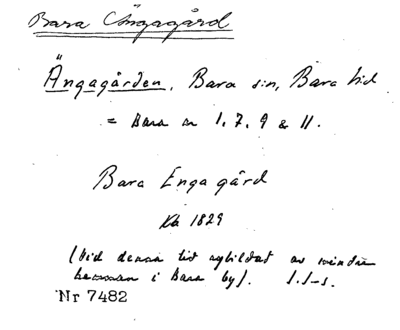 Bara Ängagård
Ängagården, Bara sn, Bara hd
= Bara nr 1, 7, 9 & 11.
Bara Enga gård
Kb 1829
(vid denna tid nybildat av mindre
hemman i Bara by). I.I-s.
Nr 7482